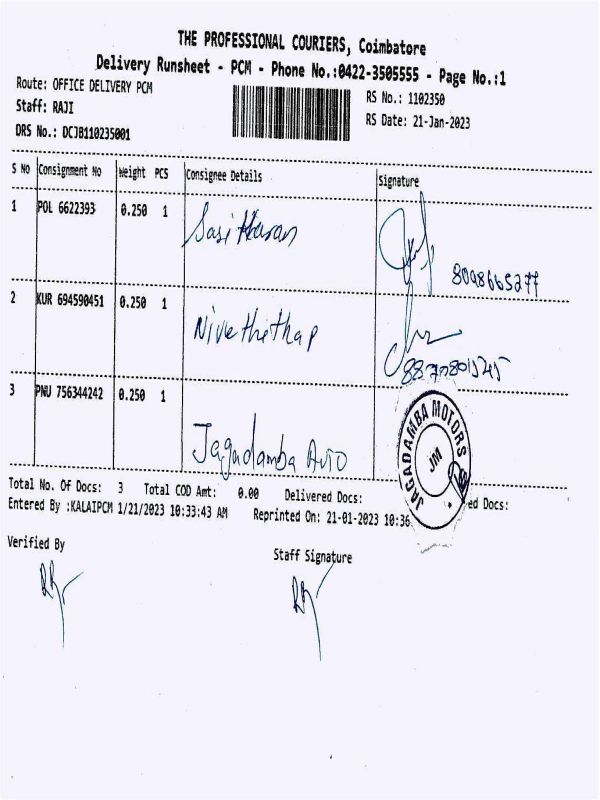 THE PROFESSIONAL COURIERS, Coimbatore
Delivery Runsheet - PCM - Phone No.:0422-3505555 - Page No.:1
Route: OFFICE DELIVERY PCM
RS No.: 1102350
Staff: RAJI
RS Date: 21-Jan-2023
DRS No.: DCJB110235001
S No Consignment No Weight PCS Consignee Details Signature
1 POL 6622393 0.250 1 Sasitharan
2 KUR 694590451 0.250 1 Nivethitha P
3 PNU 756344242 0.250 1 Jagadamba Auto
JAGADAMBA MOTORS
JM
Total No. Of Docs: 3 Total COD Amt: 0.00 Delivered Docs: ed Docs:
Entered By :KALAIPCM 1/21/2023 10:33:43 AM Reprinted On: 21-01-2023 10:36
Verified By
Staff Signature